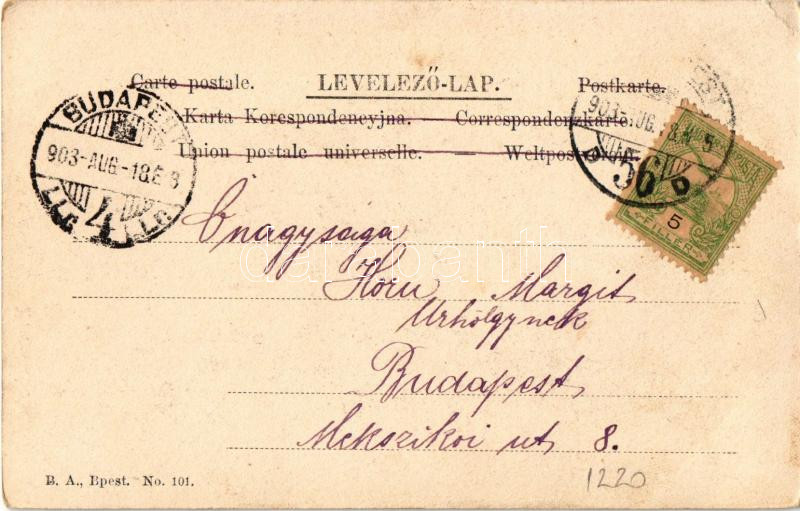 Carte postale. LEVELEZŐ-LAP. Postkarte.
Karta Korespondencyjna. — Correspondenzkarte.
Union postale universelle. — Weltpostverein.
BUDAPEST
903-AUG-18
4
56
D D
5
FILLER
Őnagysága
Horn Margit
Urhölgynek
Budapest
Mekszikoi ut 8.
B. A., Bpest. No. 101.
1220
darabanth